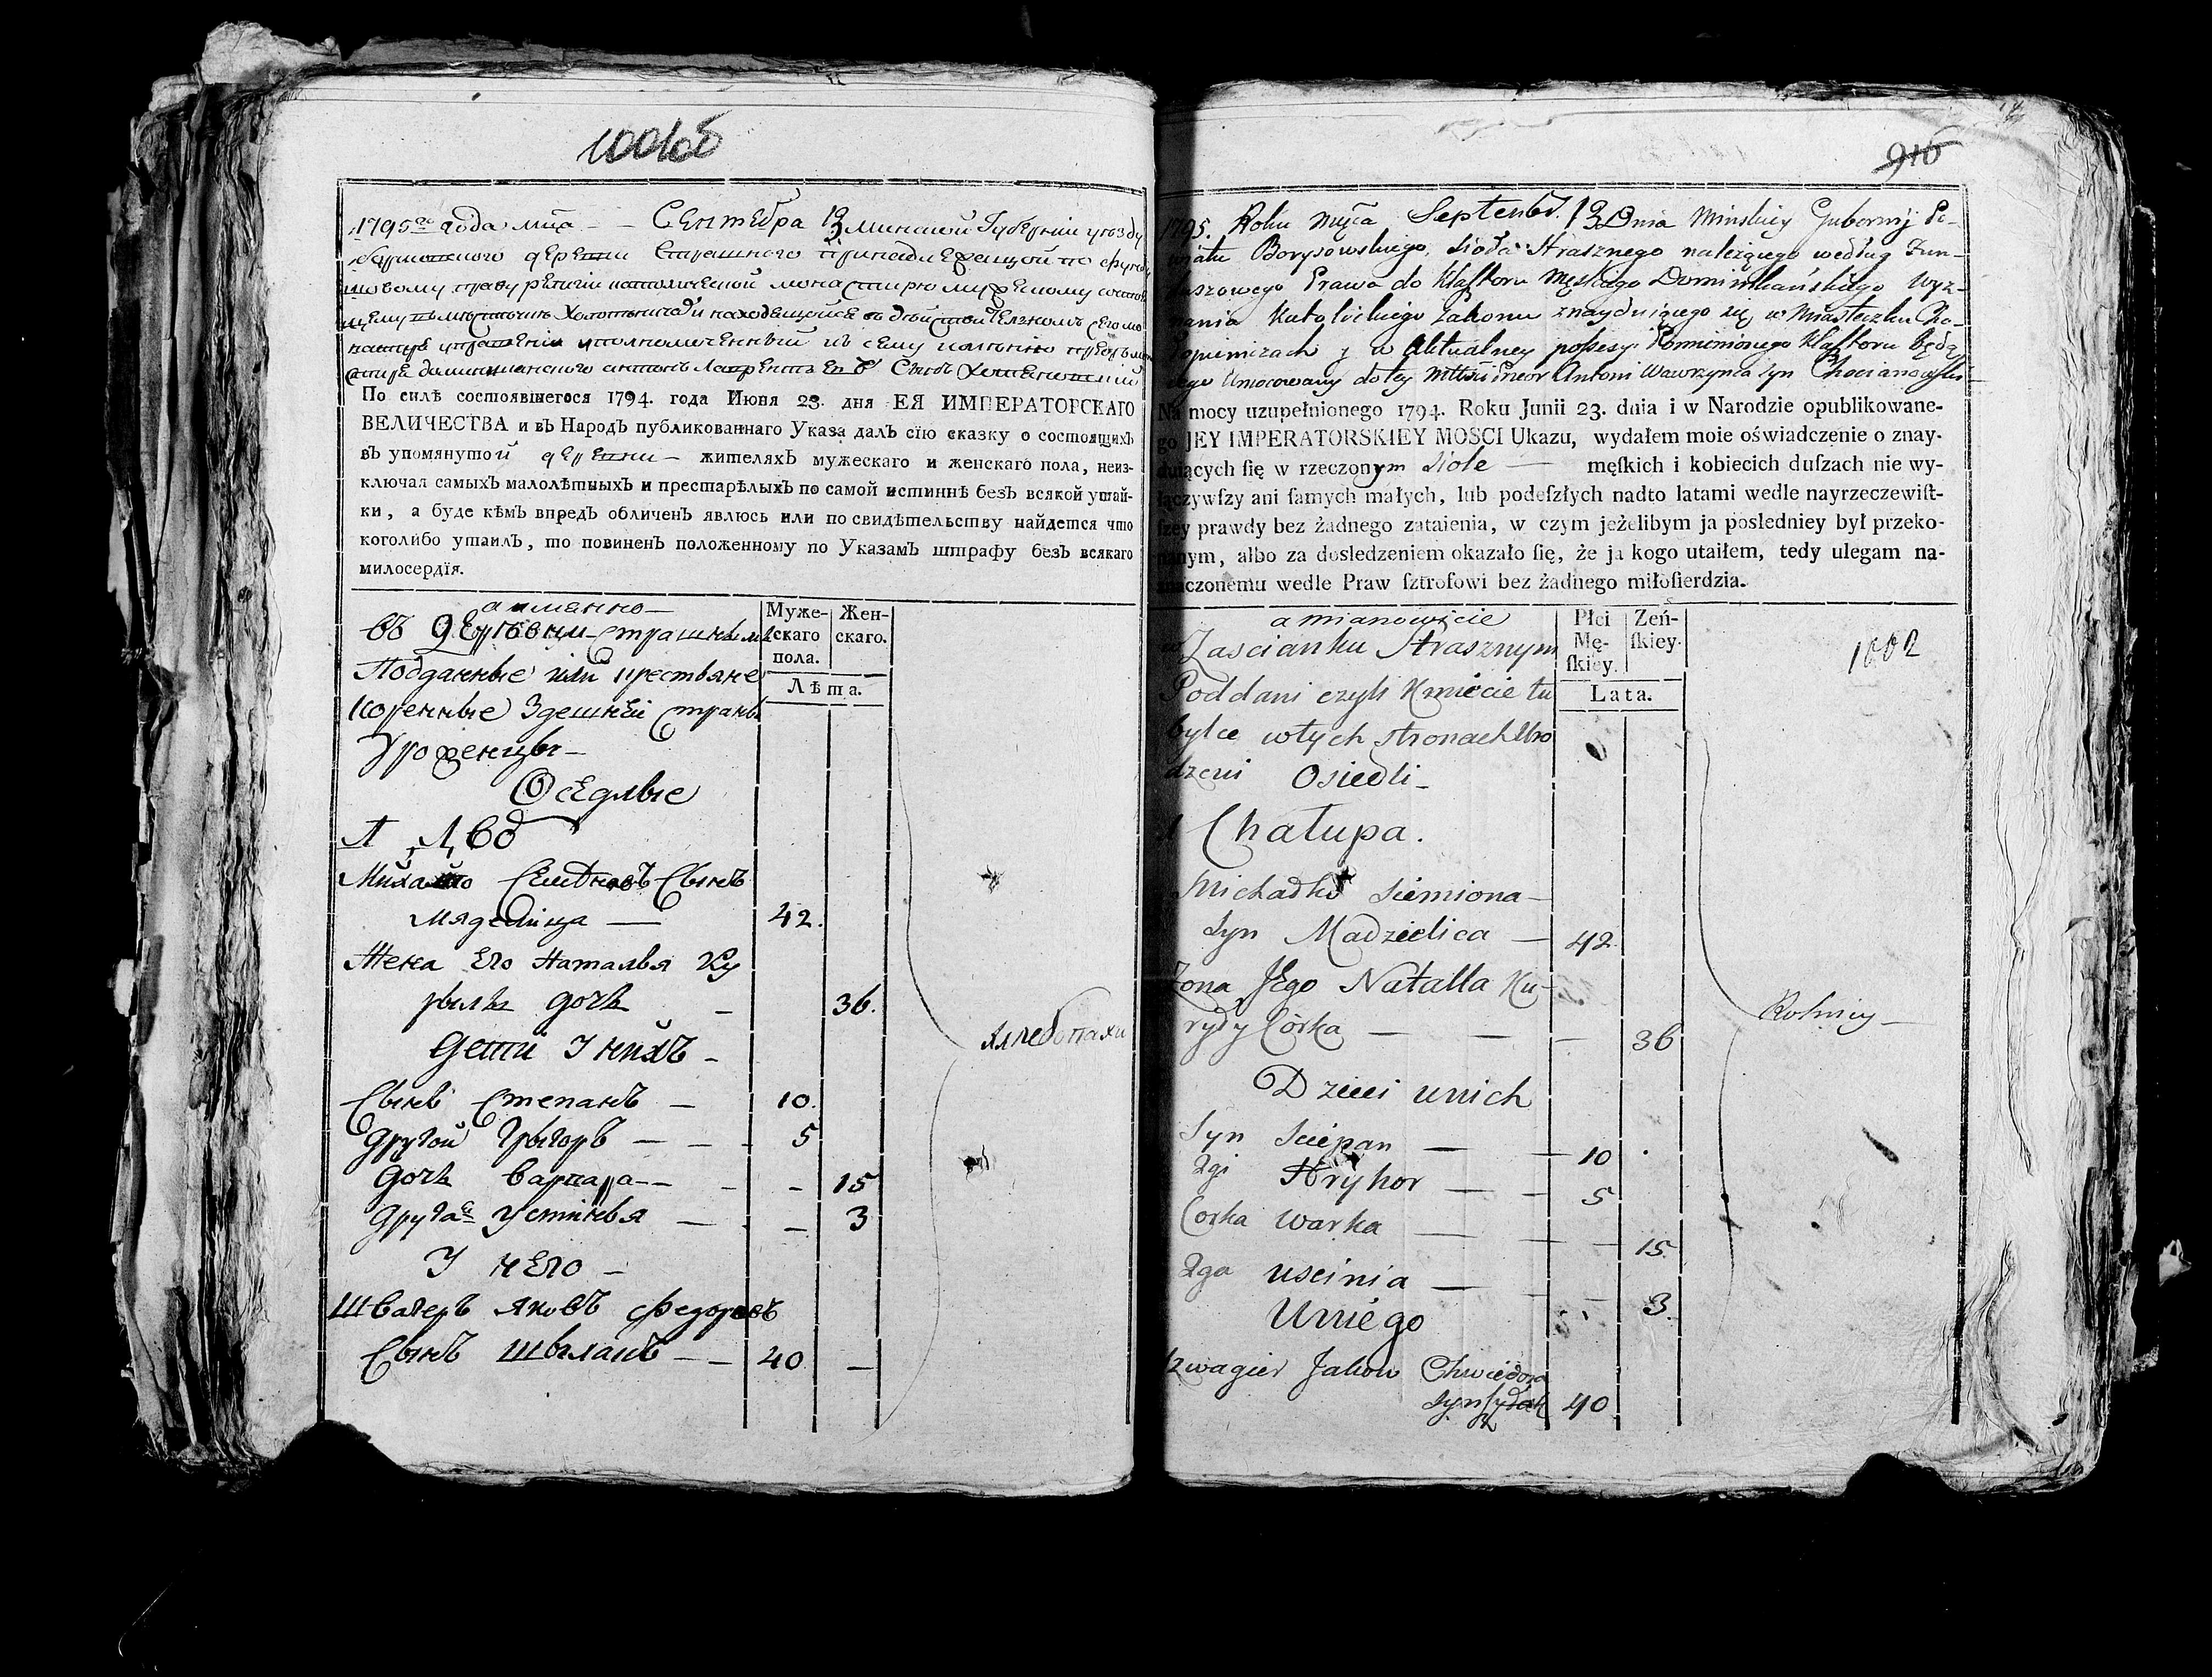 1001об
1795го года мца — Сентебра 13 Минской Губернии уезду
деревни Страшного
По силѣ состоявшегося 1794. года Июня 23. дня ЕЯ ИМПЕРАТОРСКАГО
ВЕЛИЧЕСТВА и вЪ НародЪ публикованнаго Указа далЪ сїю сказку о состоящихЪ
вЪ упомянутой деревни — жителяхЪ мужескаго и женскаго пола, неиз-
ключая самыхЪ малолѣтныхЪ и престарѣлыхЪ по самой истиннѣ безЪ всякой утай-
ки, а буде кѣмЪ впредЪ обличенЪ явлюсь или по свидѣтельству найдется что
коголибо утаилЪ, то повиненЪ положенному по УказамЪ штрафу безЪ всякаго
милосердїя.
а именно —
Муже-скаго пола. Жен-скаго.
Лѣта.
въ деревни Страшнымъ
Подданные или крестьяне
коренные Здешней страны
Уроженцы —
Оседлые
1 Двор
Михайло Семеновъ Сынъ
Мяделица — 42.
Жена Его Наталья Ку
рылы дочь — 36.
Дети У нихъ —
Сынъ Степанъ — 10.
Другой Грыгоръ — 5
Дочь Варвара — 15
Другая Устинья — 3
У него —
Шваґеръ Яковъ Федоровъ
Сынъ 40 —
Хлебопахи
916
1795. Roku Mięca Septembr. 13 Dnia Minskiey Gubernij Po-
wiatu Borysowskiego, sioła Strasznego należącego według Fun-
duszowego Prawa do Klasztoru Męskiego Dominikańskiego Wyz-
nania Katolickiego Zakonu znayduiącego się w Miasteczku Cho-
łopieniczach y w Aktualney possesyi Pomienionego Klasztoru będą
cego Umocowany do tey Antoni Wawrzynca syn Chocianowski
Na mocy uzupełnionego 1794. Roku Junii 23. dnia i w Narodzie opublikowane-
go JEY IMPERATORSKIEY MOSCI Ukazu, wydałem moie oświadczenie o znay-
duiących ſię w rzeczonym siole — męſkich i kobiecich duſzach nie wy-
łączywſzy ani ſamych małych, lub podeſzłych nadto latami wedle nayrzeczewiſt-
ſzey prawdy bez żadnego zataienia, w czym jeżelibym ja posledniey był przeko-
nanym, albo za dosledzeniem okazało ſię, że ja kogo utaiłem, tedy ulegam na-
znaczonemu wedle Praw ſztrofowi bez żadnego miłoſierdzia.
a mianowicie
Płci Mę-ſkiey. Żeń-ſkiey.
Lata.
1002
w Zascianku Strasznym
Poddani czyli Kmiecie tu
bylce w tych stronach Uro
dzeni Osiedli —
1 Chałupa.
Michadko Siemiona —
Syn Madzielica — 42.
Zona Jego Natalla Ku-
ryły Córka — 36
Dzieci unich
Syn Sciepan — 10
2gi Hryhor — 5
Corka Warka — 15.
2ga Uscinia — 3.
Uniego
Szwagier Jakow Chwiedora
syn 40
Rolnicy —